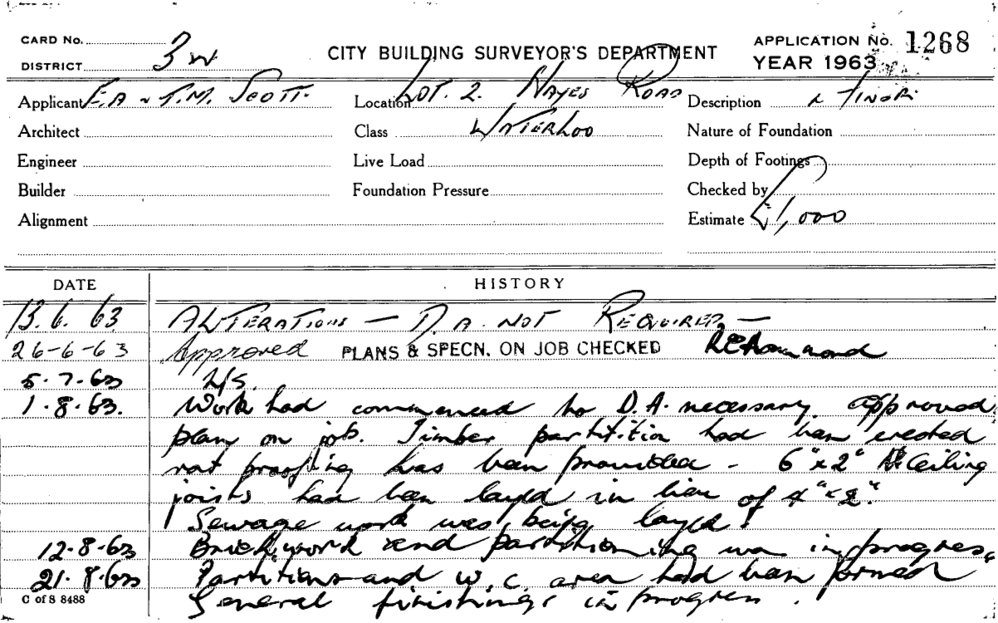 CARD No.
DISTRICT 3W
CITY BUILDING SURVEYOR'S DEPARTMENT
APPLICATION No. 1268
YEAR 1963
Applicant E.A & T.M. SCOTT.
Location LOT. 2. HAYES ROAD
Description
Architect
Class WATERLOO
Nature of Foundation
Engineer
Live Load
Depth of Footings
Builder
Foundation Pressure
Checked by
Alignment
Estimate £1,000
DATE HISTORY
13.6.63 ALTERATIONS — D.A. NOT REQUIRED —
26-6-63 Approved PLANS & SPECN. ON JOB CHECKED
5.7.63
1.8.63. Work had commenced no D.A. necessary. approved
plan on job. Timber partitition had been erected
rat proofing has been provided - 6"x2" Ceiling
joists had been layed in lieu of 4"x2".
Sewage work was being layed.
12-8-63 Brickwork and partitioning was in progress.
21.8.63 Partitions and W.C. area had been formed
General finishings in progress.
C of S 8488